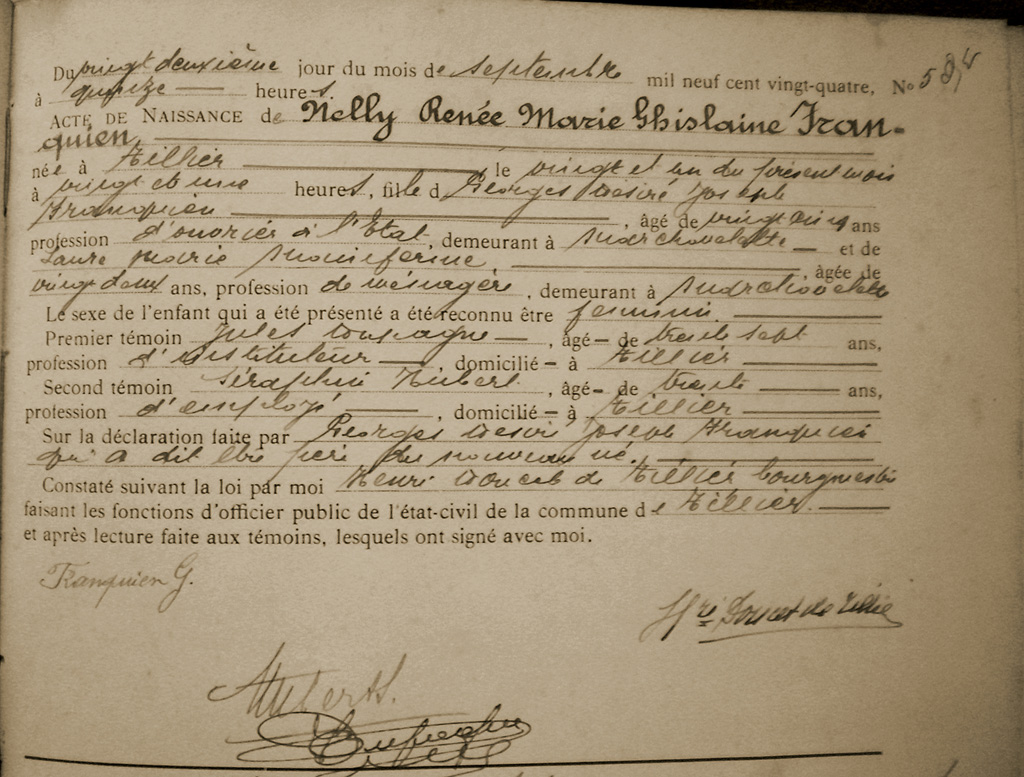 Du vingt deuxième jour du mois de septembre mil neuf cent vingt-quatre, No
à quinze heures.
ACTE DE NAISSANCE de Nelly Renée Marie Ghislaine Fran-
quien,
née à Tillier, le vingt et un du présent mois
à vingt et une heures, fille d Georges Désiré Joseph
Franquien, âgé de vingt cinq ans
profession d'ouvrier à l'Etat, demeurant à Marchovelette et de
Laure Marie, âgée de
vingt deux ans, profession de ménagère, demeurant à Marchovelette
Le sexe de l'enfant qui a été présenté a été reconnu être féminin.
Premier témoin Jules, âgé de trente sept ans,
profession d'instituteur, domicilié à Tillier
Second témoin Séraphin Hubert, âgé de trente ans,
profession d'employé, domicilié à Tillier
Sur la déclaration faite par Georges Désiré Joseph Franquien
qui a dit être père du nouveau né.
Constaté suivant la loi par moi Henri Doucet de Tillier bourgmestre
faisant les fonctions d'officier public de l'état-civil de la commune de Tillier.
et après lecture faite aux témoins, lesquels ont signé avec moi.
Franquien G.
Hri Doucet de Tillier
Hubert S.